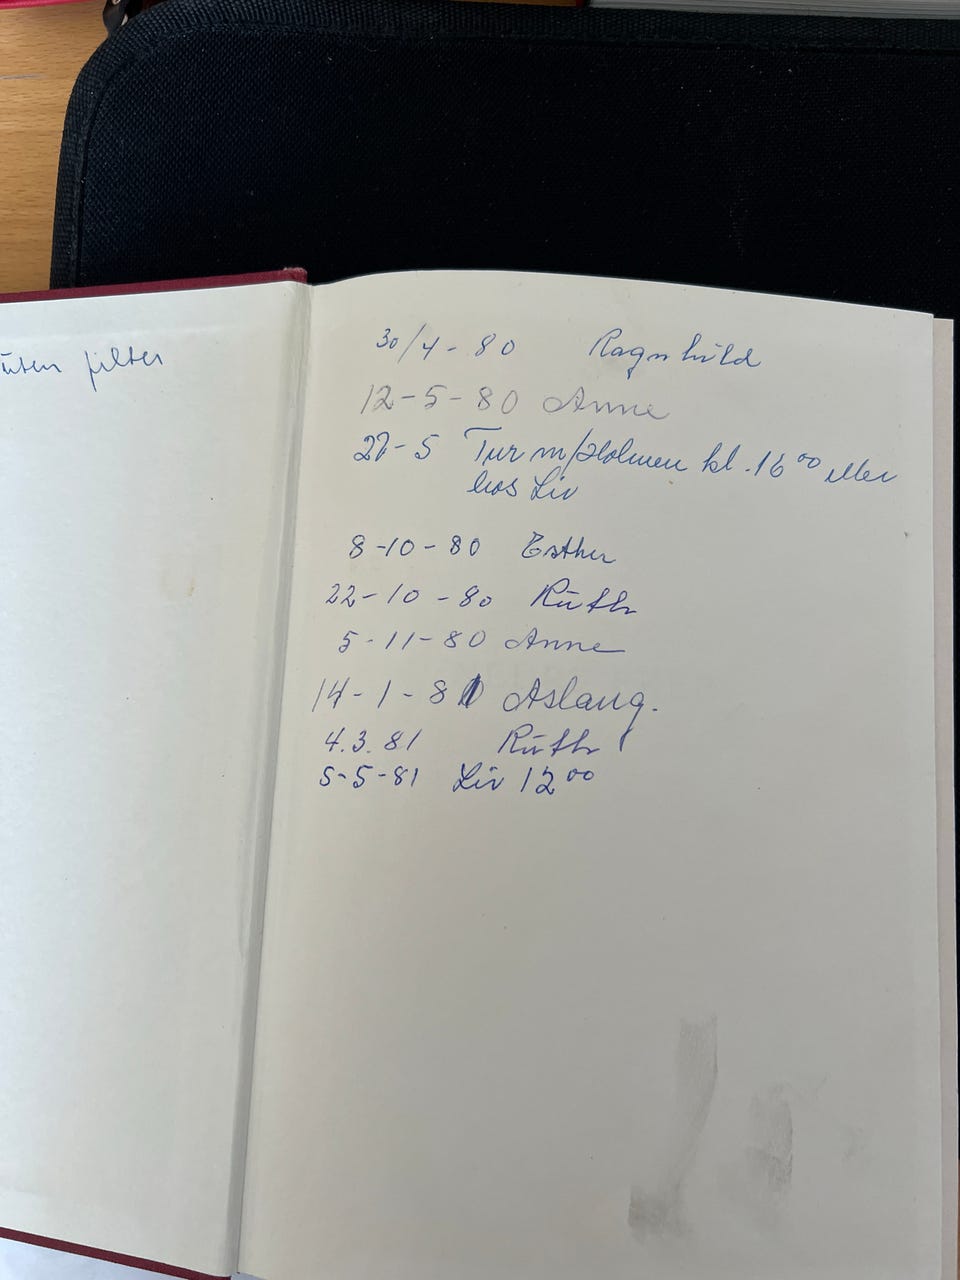 uten filter
30/4 - 80 Ragnhild
12-5-80 Anne
27-5 Tur m/Holmen kl. 16 00 eller
hos Liv
8-10-80 Esther
22-10-80 Ruth
5-11-80 Anne
14-1-81 Aslaug.
4.3.81 Ruth
5-5-81 Liv 12 00